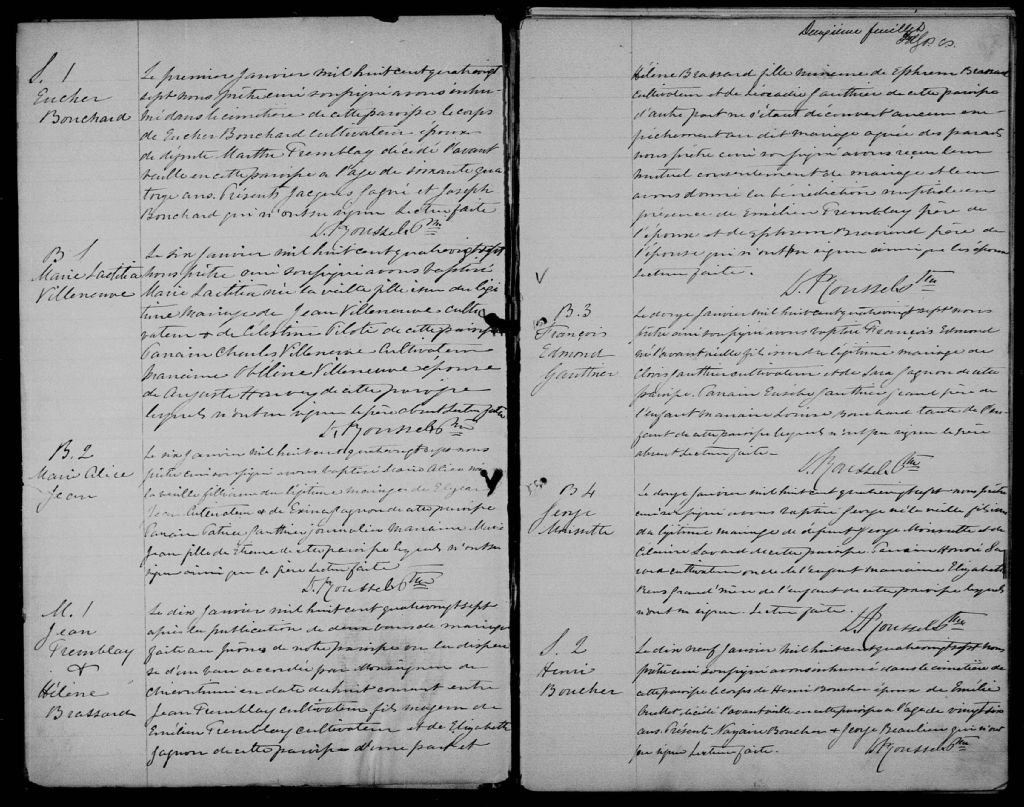 S. 1
Eucher
Bouchard
Le premier janvier mil huit cent quatrevingt
sept nous prêtre curé soussigné avons inhu-
mé dans le cimetière de cette paroisse le corps
de Eucher Bouchard cultivateur époux
de défunte Marthe Tremblay décédé l'avant
veille en cette paroisse à l'age de soixante qua
torze ans. Présents Jacques Gagné et Joseph
Bouchard qui n'ont su signer Lecture faite
D. Roussel Ptre
B 1
Marie Laetitia
Villeneuve
Le six janvier mil huit cent quatrevingt sept
nous prêtre curé soussigné avons baptisé
Marie Laetitia née la veille fille issue du légi
time mariage de Jean Villeneuve culti
vateur & de Célestine Pilote de cette paroisse
Parrain Charles Villeneuve Cultivateur
marraine Villeneuve épouse
de Auguste Harvey de cette paroisse
lesquels n'ont su signer le père absent Lecture faite
D. Roussel Ptre
B. 2
Marie Alice
Jean
Le six janvier mil huit cent quatrevingt sept nous
prêtre curé soussigné avons baptisé Marie Alice née
la veille fille issue du légitime mariage de
Jean Cultivateur & de Gagnon de cette paroisse
Parrain Patrice Gauthier journalier marraine Marie
Jean fille de de cette paroisse lesquels n'ont su
signer ainsi que le père Lecture faite
D. Roussel Ptre
M. 1
Jean
Tremblay
&
Hélène
Brassard
Le dix janvier mil huit cent quatrevingt sept
après la publication de deux bans de mariage
faite au prône de notre paroisse vu la dispen
se d'un ban accordée par Monseigneur de
Chicoutimi en date de huit courant entre
Jean Tremblay cultivateur fils majeur de
Émilien Tremblay cultivateur et de Elizabeth
Gagnon de cette paroisse d'une part et
Deuxième feuillet
Hélène Brassard fille mineure de Ephrem Brassard
cultivateur et de Léocadie Gauthier de cette paroisse
d'autre part ne s'étant découvert aucun em
pêchement au dit mariage agréé des parents
nous prêtre curé soussigné avons reçu leur
mutuel consentement de mariage et leur
avons donné la bénédiction nuptiale en
présence de Émilien Tremblay père de
l'époux et de Ephrem Brassard père de
l'épouse qui n'ont su signer ainsi que les époux
Lecture faite.
D. Roussel Ptre
B. 3
François
Edmond
Gauthier
Le douze janvier mil huit cent quatrevingt sept nous
prêtre curé soussigné avons baptisé François Edmond
né l'avant veille fils issu du légitime mariage de
Clovis Gauthier cultivateur et de Sara Gagnon de cette
paroisse. Parrain Eusèbe Gauthier grand père de
l'enfant marraine Louise Bouchard tante de l'en
fant de cette paroisse lesquels n'ont pu signer le père
absent Lecture faite.
D. Roussel Ptre
B 4
George
Morissette
Le douze janvier mil huit cent quatrevingt sept nous prêtre
curé soussigné avons baptisé George né la veille fils issu
du légitime mariage de défunt George Morissette et de
Savard de cette paroisse. Parrain Honoré Sa
vard cultivateur oncle de l'enfant marraine Elizabeth
grand'mère de l'enfant de cette paroisse lesquels
n'ont su signer. Lecture faite.
D. Roussel Ptre
S. 2
Henri
Boucher
Le dix neuf janvier mil huit cent quatrevingt sept nous
prêtre curé soussigné avons inhumé dans le cimetière de
cette paroisse le corps de Henri Boucher époux de Émilie
Ouellet, décédé l'avant veille en cette paroisse à l'age de vingt six
ans. Présents Nazaire Boucher & George Beaulieu qui n'ont
pu signer Lecture faite.
D. Roussel Ptre